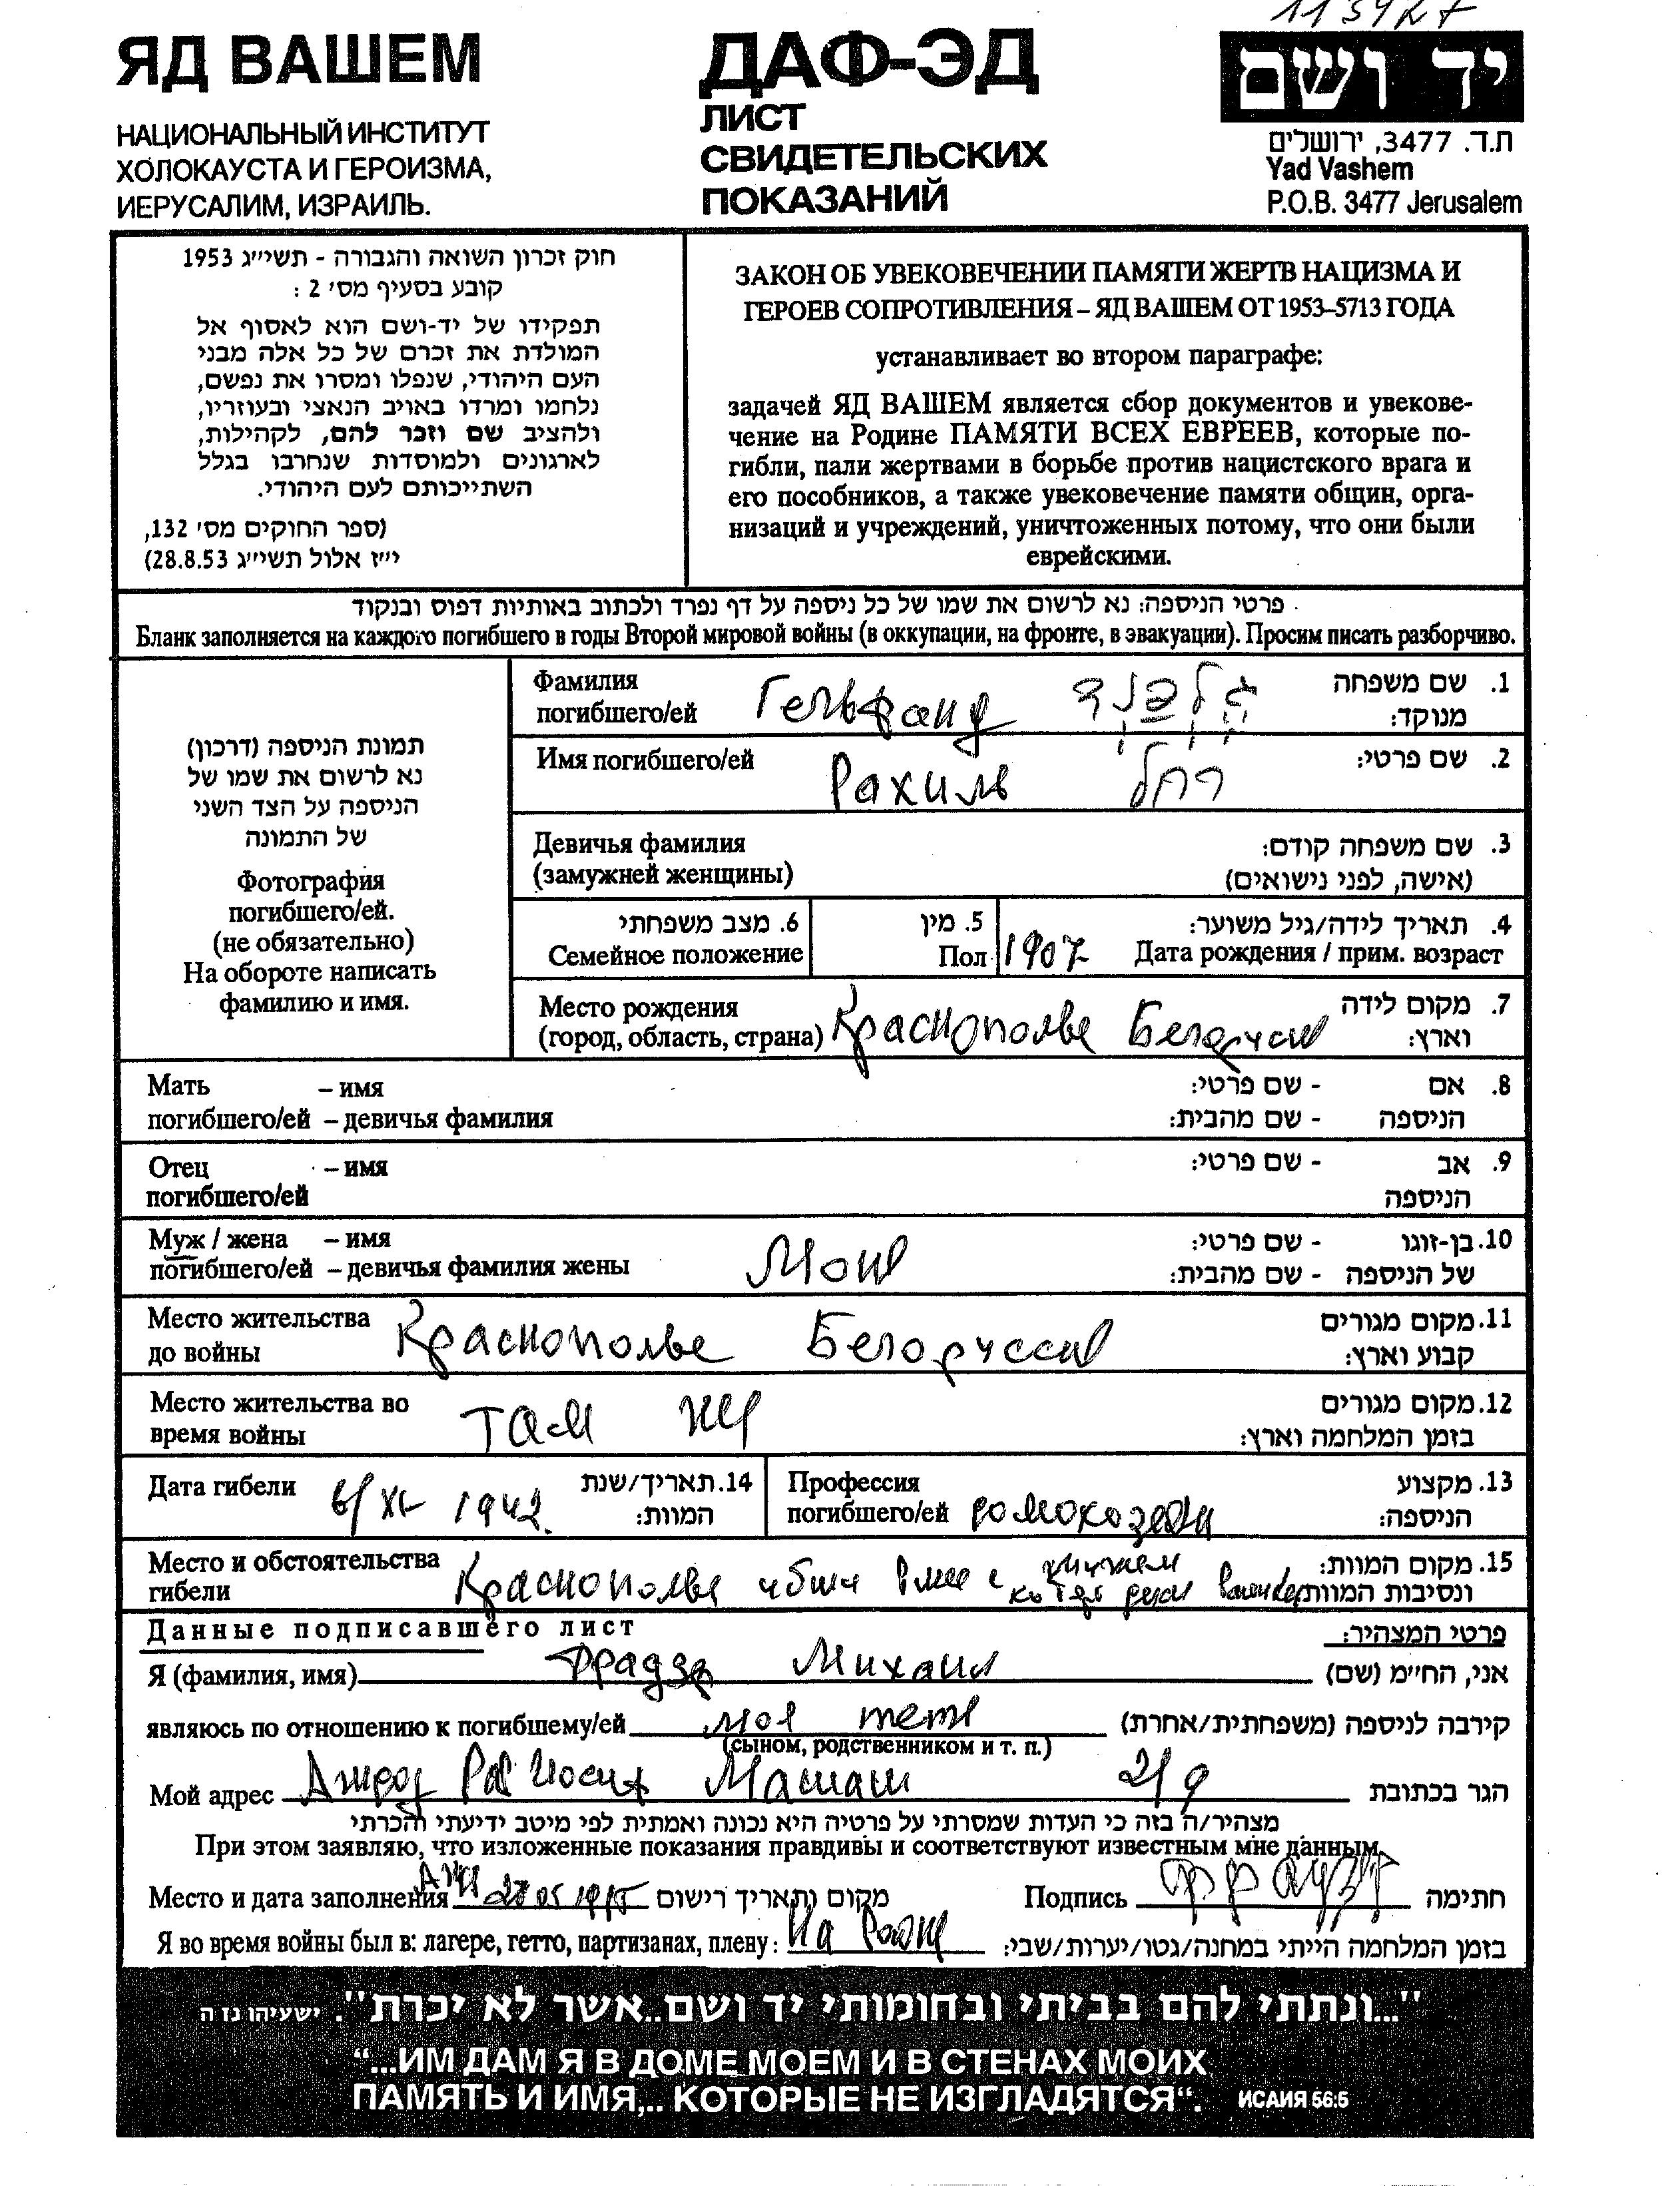 ЯД ВАШЕМ
НАЦИОНАЛЬНЫЙ ИНСТИТУТ
ХОЛОКАУСТА И ГЕРОИЗМА,
ИЕРУСАЛИМ, ИЗРАИЛЬ.
ДАФ-ЭД
ЛИСТ
СВИДЕТЕЛЬСКИХ
ПОКАЗАНИЙ
יד ושם
ת.ד. 3477, ירושלים
Yad Vashem
P.O.B. 3477 Jerusalem
חוק זכרון השואה והגבורה - תשי״ג 1953
קובע בסעיף מס׳ 2 :
תפקידו של יד-ושם הוא לאסוף אל
המולדת את זכרם של כל אלה מבני
העם היהודי, שנפלו ומסרו את נפשם,
נלחמו ומרדו באויב הנאצי ובעוזריו,
ולהציב שם וזכר להם, לקהילות,
לארגונים ולמוסדות שנחרבו בגלל
השתייכותם לעם היהודי.
(ספר החוקים מס׳ 132,
י״ז אלול תשי״ג 28.8.53)
ЗАКОН ОБ УВЕКОВЕЧЕНИИ ПАМЯТИ ЖЕРТВ НАЦИЗМА И
ГЕРОЕВ СОПРОТИВЛЕНИЯ – ЯД ВАШЕМ ОТ 1953–5713 ГОДА
устанавливает во втором параграфе:
задачей ЯД ВАШЕМ является сбор документов и увекове-
чение на Родине ПАМЯТИ ВСЕХ ЕВРЕЕВ, которые по-
гибли, пали жертвами в борьбе против нацистского врага и
его пособников, а также увековечение памяти общин, орга-
низаций и учреждений, уничтоженных потому, что они были
еврейскими.
פרטי הניספה: נא לרשום את שמו של כל ניספה על דף נפרד ולכתוב באותיות דפוס ובנקוד
Бланк заполняется на каждого погибшего в годы Второй мировой войны (в оккупации, на фронте, в эвакуации). Просим писать разборчиво.
תמונת הניספה (דרכון)
נא לרשום את שמו של
הניספה על הצד השני
של התמונה
Фотография
погибшего/ей.
(не обязательно)
На обороте написать
фамилию и имя.
Фамилия
погибшего/ей Гельфанд גלפנד
1. שם משפחה
מנוקד:
Имя погибшего/ей Рахиль רחל 2. שם פרטי:
Девичья фамилия
(замужней женщины)
3. שם משפחה קודם:
(אישה, לפני נישואים)
6. מצב משפחתי
Семейное положение
5. מין
Пол
4. תאריך לידה/גיל משוער:
1907 Дата рождения / прим. возраст
Место рождения
(город, область, страна) Краснополье Белорусси
7. מקום לידה
וארץ:
Мать – имя
погибшего/ей – девичья фамилия
8. אם - שם פרטי:
הניספה - שם מהבית:
Отец – имя
погибшего/ей
9. אב - שם פרטי:
הניספה
Муж / жена – имя
погибшего/ей – девичья фамилия жены
10. בן-זוגו - שם פרטי:
של הניספה - שם מהבית:
Место жительства
до войны Краснополье Белоруссия
11. מקום מגורים
קבוע וארץ:
Место жительства во
время войны там же
12. מקום מגורים
בזמן המלחמה וארץ:
Дата гибели 1942
14. תאריך/שנת
המוות:
Профессия
погибшего/ей домохозяйка
13. מקצוע
הניספה:
Место и обстоятельства
гибели Краснополье
15. מקום המוות:
ונסיבות המוות
Данные подписавшего лист
פרטי המצהיר:
Я (фамилия, имя) Михаил אני, הח״מ (שם)
являюсь по отношению к погибшему/ей моя тетя קירבה לניספה (משפחתית/אחרת)
(сыном, родственником и т. п.)
Мой адрес הגר בכתובת
מצהיר/ה בזה כי העדות שמסרתי על פרטיה היא נכונה ואמתית לפי מיטב ידיעתי והכרתי
При этом заявляю, что изложенные показания правдивы и соответствуют известным мне данным.
Место и дата заполнения מקום ותאריך רישום Подпись חתימה
Я во время войны был в: лагере, гетто, партизанах, плену: בזמן המלחמה הייתי במחנה/גטו/יערות/שבי:
"...ונתתי להם בביתי ובחומותי יד ושם..אשר לא יכרת". ישעיהו נו ה
“...ИМ ДАМ Я В ДОМЕ МОЕМ И В СТЕНАХ МОИХ
ПАМЯТЬ И ИМЯ,.. КОТОРЫЕ НЕ ИЗГЛАДЯТСЯ“. ИСАИЯ 56:5